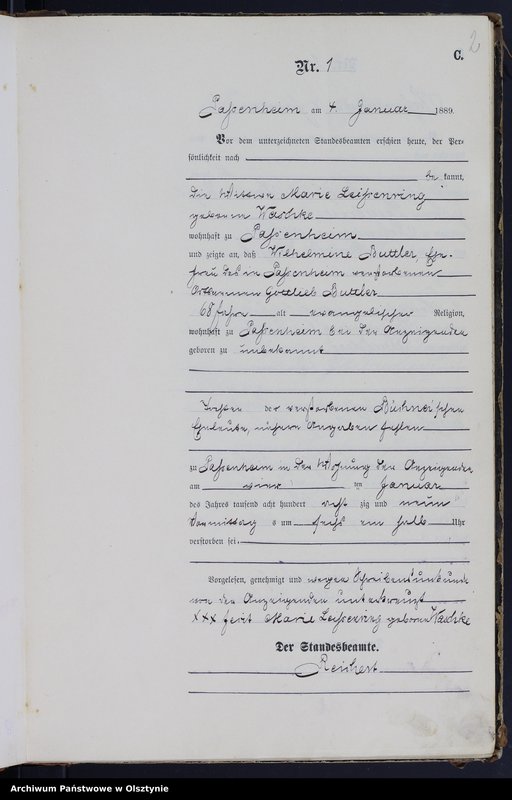 2
C.
Nr. 1
Passenheim am 4. Januar 1889.
Vor dem unterzeichneten Standesbeamten erschien heute, der Per-
sönlichkeit nach
be kannt,
die Wittwe Marie Leissenring
geborene Waschke
wohnhaft zu Passenheim
und zeigte an, daß Wilhelmine Buttler, Ehe-
frau des in Passenheim verstorbenen
Ortsarmen Gottlieb Buttler
68 Jahre alt evangelischer Religion,
wohnhaft zu Passenheim bei der Anzeigenden
geboren zu unbekannt
Tochter der verstorbenen Büchner'schen
Eheleute, nähere Angaben fehlen
zu Passenheim in der Wohnung der Anzeigenden
am vier ten Januar
des Jahres tausend acht hundert acht zig und neun
Vormittags um sechs ein halb Uhr
verstorben sei.
Vorgelesen, genehmigt und wegen Schreibensunkunde
von der Anzeigenden unterkreuzt
XXX Marie Leissenring geborene Waschke
Der Standesbeamte.
Reichert
Archiwum Państwowe w Olsztynie